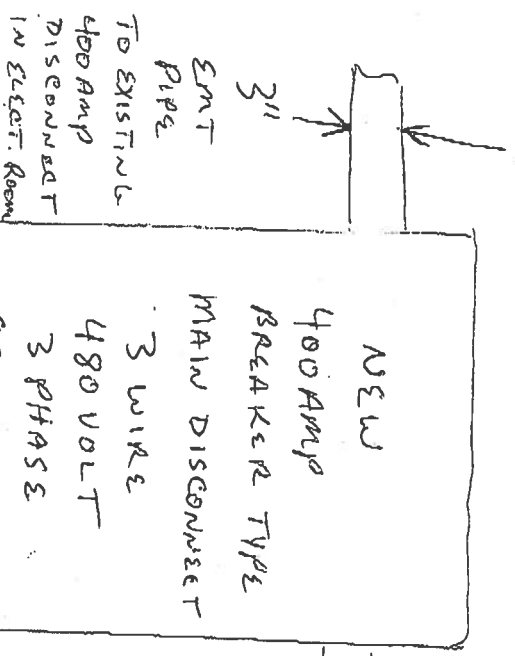 3"
EMT
PIPE
TO EXISTING
400 AMP
DISCONNECT
IN ELECT. ROOM
NEW
400 AMP
BREAKER TYPE
MAIN DISCONNECT
3 WIRE
480 VOLT
3 PHASE